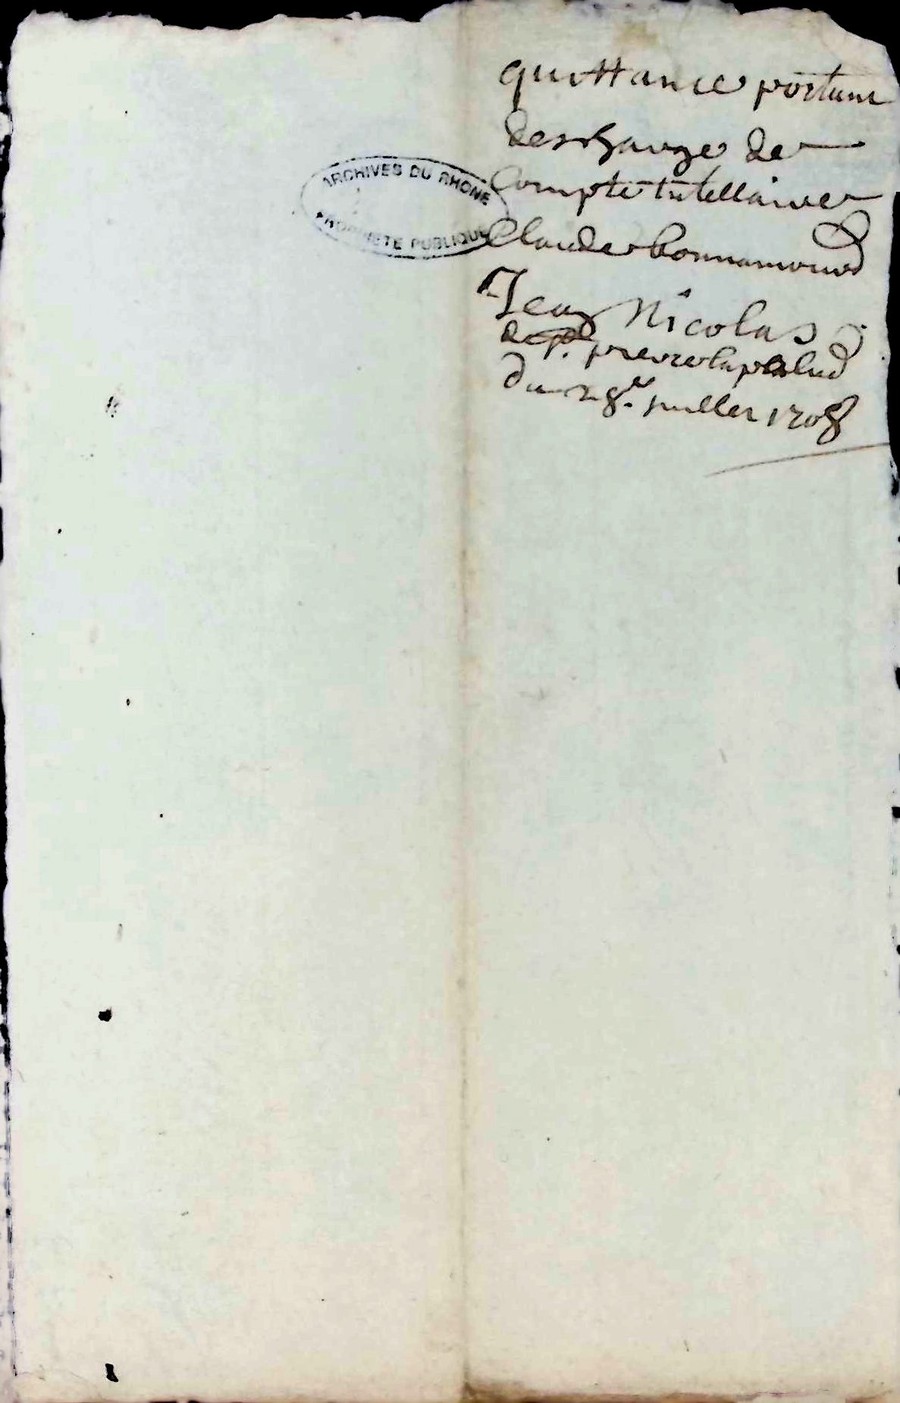 quittance portant
descharge de
Compte tutellaire
Claude bonnamour
Jean Nicolas
du 28e. juillet 1708
ARCHIVES DU RHONE
PROPRIETE PUBLIQUE